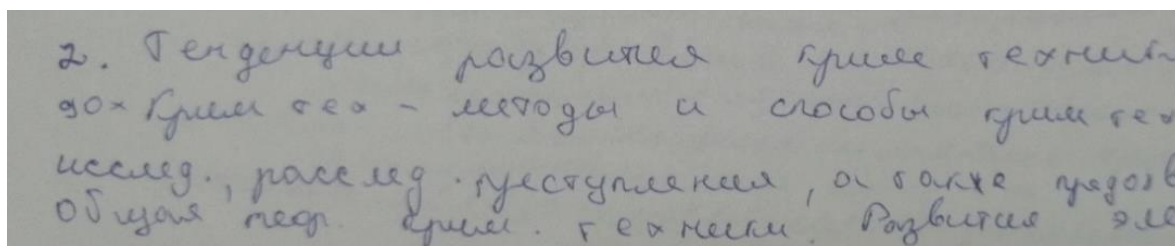 2. Тенденции развития крим техни
90х Крим тех - методы и способы крим тех
исслед., расслед. преступления, а также предотв
Общая теор. крим. техники. Развития эл